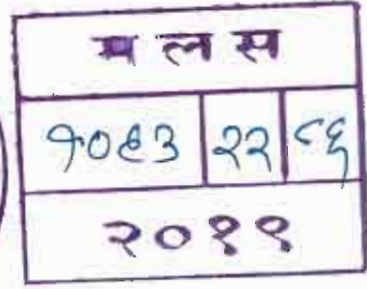 म ल स
१०९३ २२ ८६
२०१९